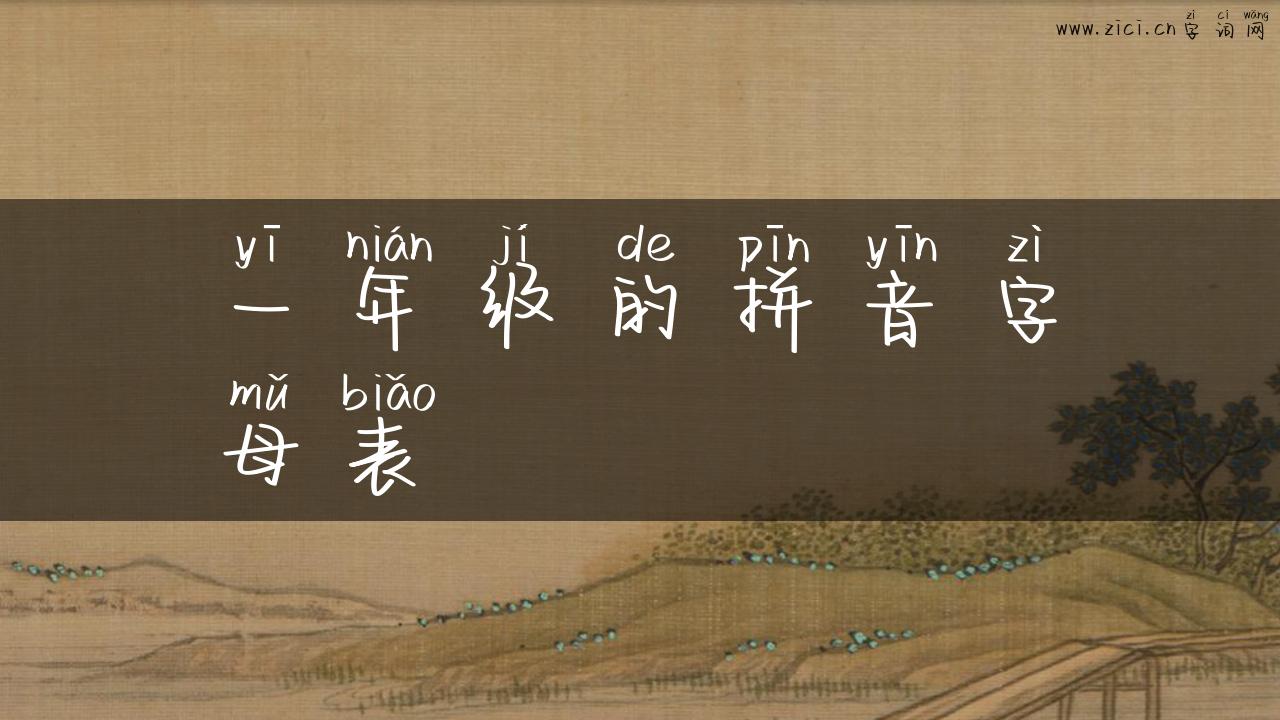 zì cí wǎng
www.zici.cn字词网
yī nián jí de pīn yīn zì
一年级的拼音字
mǔ biǎo
母表